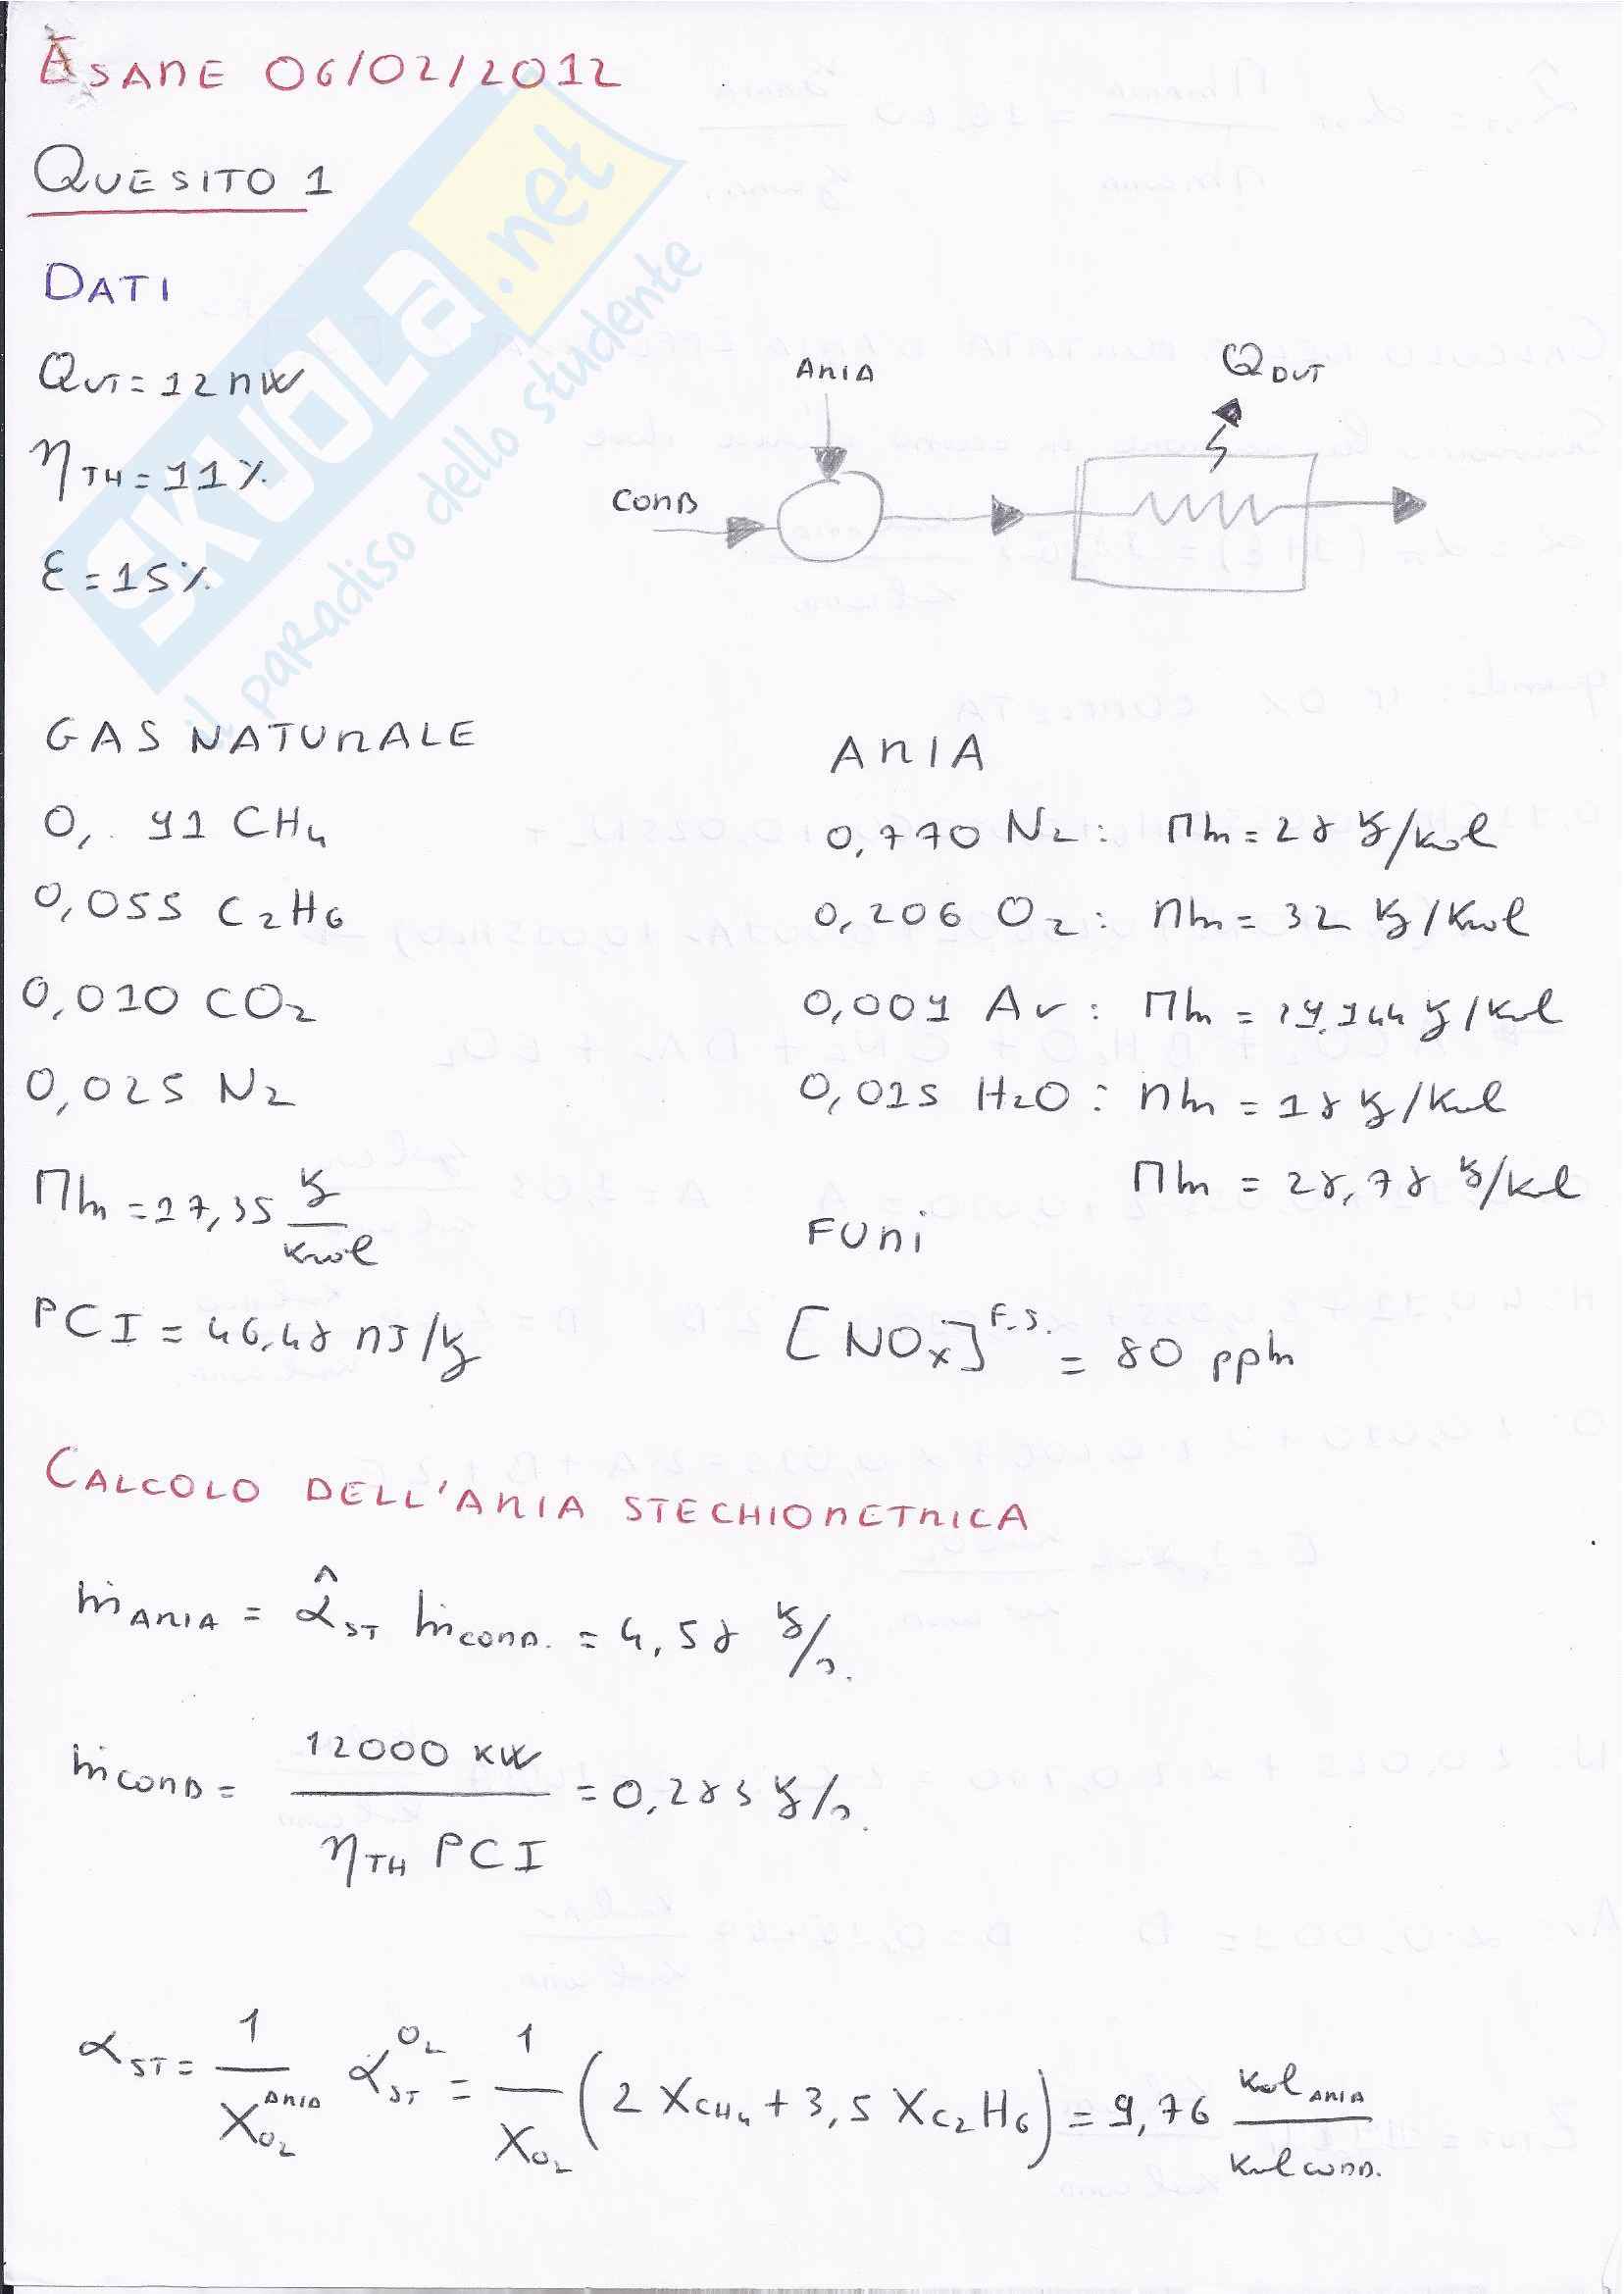 ESAME 06/02/2012
QUESITO 1
DATI
QUT = 12 MW
ηTH = 91%
ε = 15%
ARIA
COMB
QOUT
GAS NATURALE
0,91 CH4
0,055 C2H6
0,010 CO2
0,025 N2
Mm = 17,35 kg/kmol
PCI = 46,48 MJ/kg
ARIA
0,770 N2: Mm = 28 kg/kmol
0,206 O2: Mm = 32 kg/kmol
0,009 Ar: Mm = 39,944 kg/kmol
0,015 H2O: Mm = 18 kg/kmol
Mm = 28,78 kg/kmol
FUMI
[NOx]F.S. = 80 ppm
CALCOLO DELL'ARIA STECHIOMETRICA
ṁARIA = α̂ST ṁCOMB. = 4,58 kg/s.
ṁCOMB = 12000 kW / ηTH PCI = 0,283 kg/s.
αST = 1/XO2ARIA αSTO2 = 1/XO2 (2 XCH4 + 3,5 XC2H6) = 9,76 kmol ARIA / kmol COMB.
SKUOLA.net
il paradiso dello studente